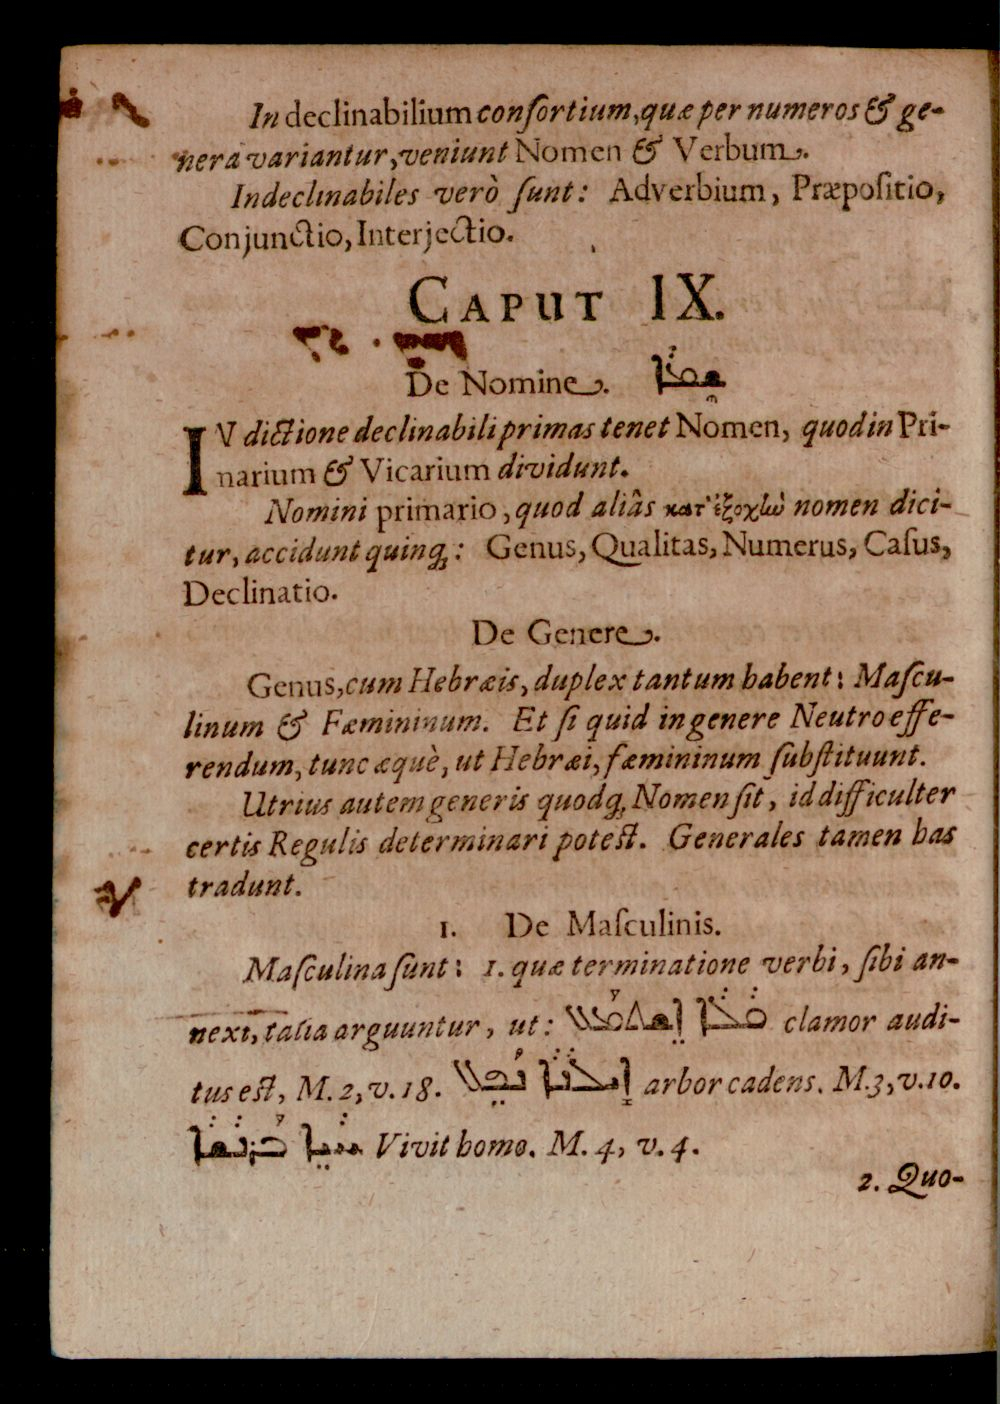 In declinabilium conſortium, quæ per numeros & ge-
nera variantur, veniunt Nomen & Verbum.
Indeclinabiles verò ſunt: Adverbium, Præpoſitio,
Conjunctio, Interjectio.
CAPUT IX.
De Nomine. ܫܡܐ
IN dictione declinabili primas tenet Nomen, quod in Pri-
narium & Vicarium dividunt.
Nomini primario, quod aliâs κατ' ἐξοχὼ nomen dici-
tur, accidunt quinq;: Genus, Qualitas, Numerus, Caſus,
Declinatio.
De Genere.
Genus, cum Hebræis, duplex tantum habent: Maſcu-
linum & Fæmininum. Et ſi quid in genere Neutro effe-
rendum, tunc æquè, ut Hebræi, fæmininum ſubſtituunt.
Utrius autem generis quodq; Nomen ſit, id difficulter
certis Regulis determinari poteſt. Generales tamen has
tradunt.
1. De Maſculinis.
Maſculina ſunt: 1. quæ terminatione verbi, ſibi an-
nexi, talia arguuntur, ut: ܩܠܐ ܐܫܬܡܥ clamor audi-
tus eſt, M. 2, v. 18. ܐܝܠܢܐ ܢܦܠ arbor cadens. M. 3, v. 10.
ܚܝܐ ܒܪܢܫܐ Vivit homo. M. 4, v. 4.
2. Quo-